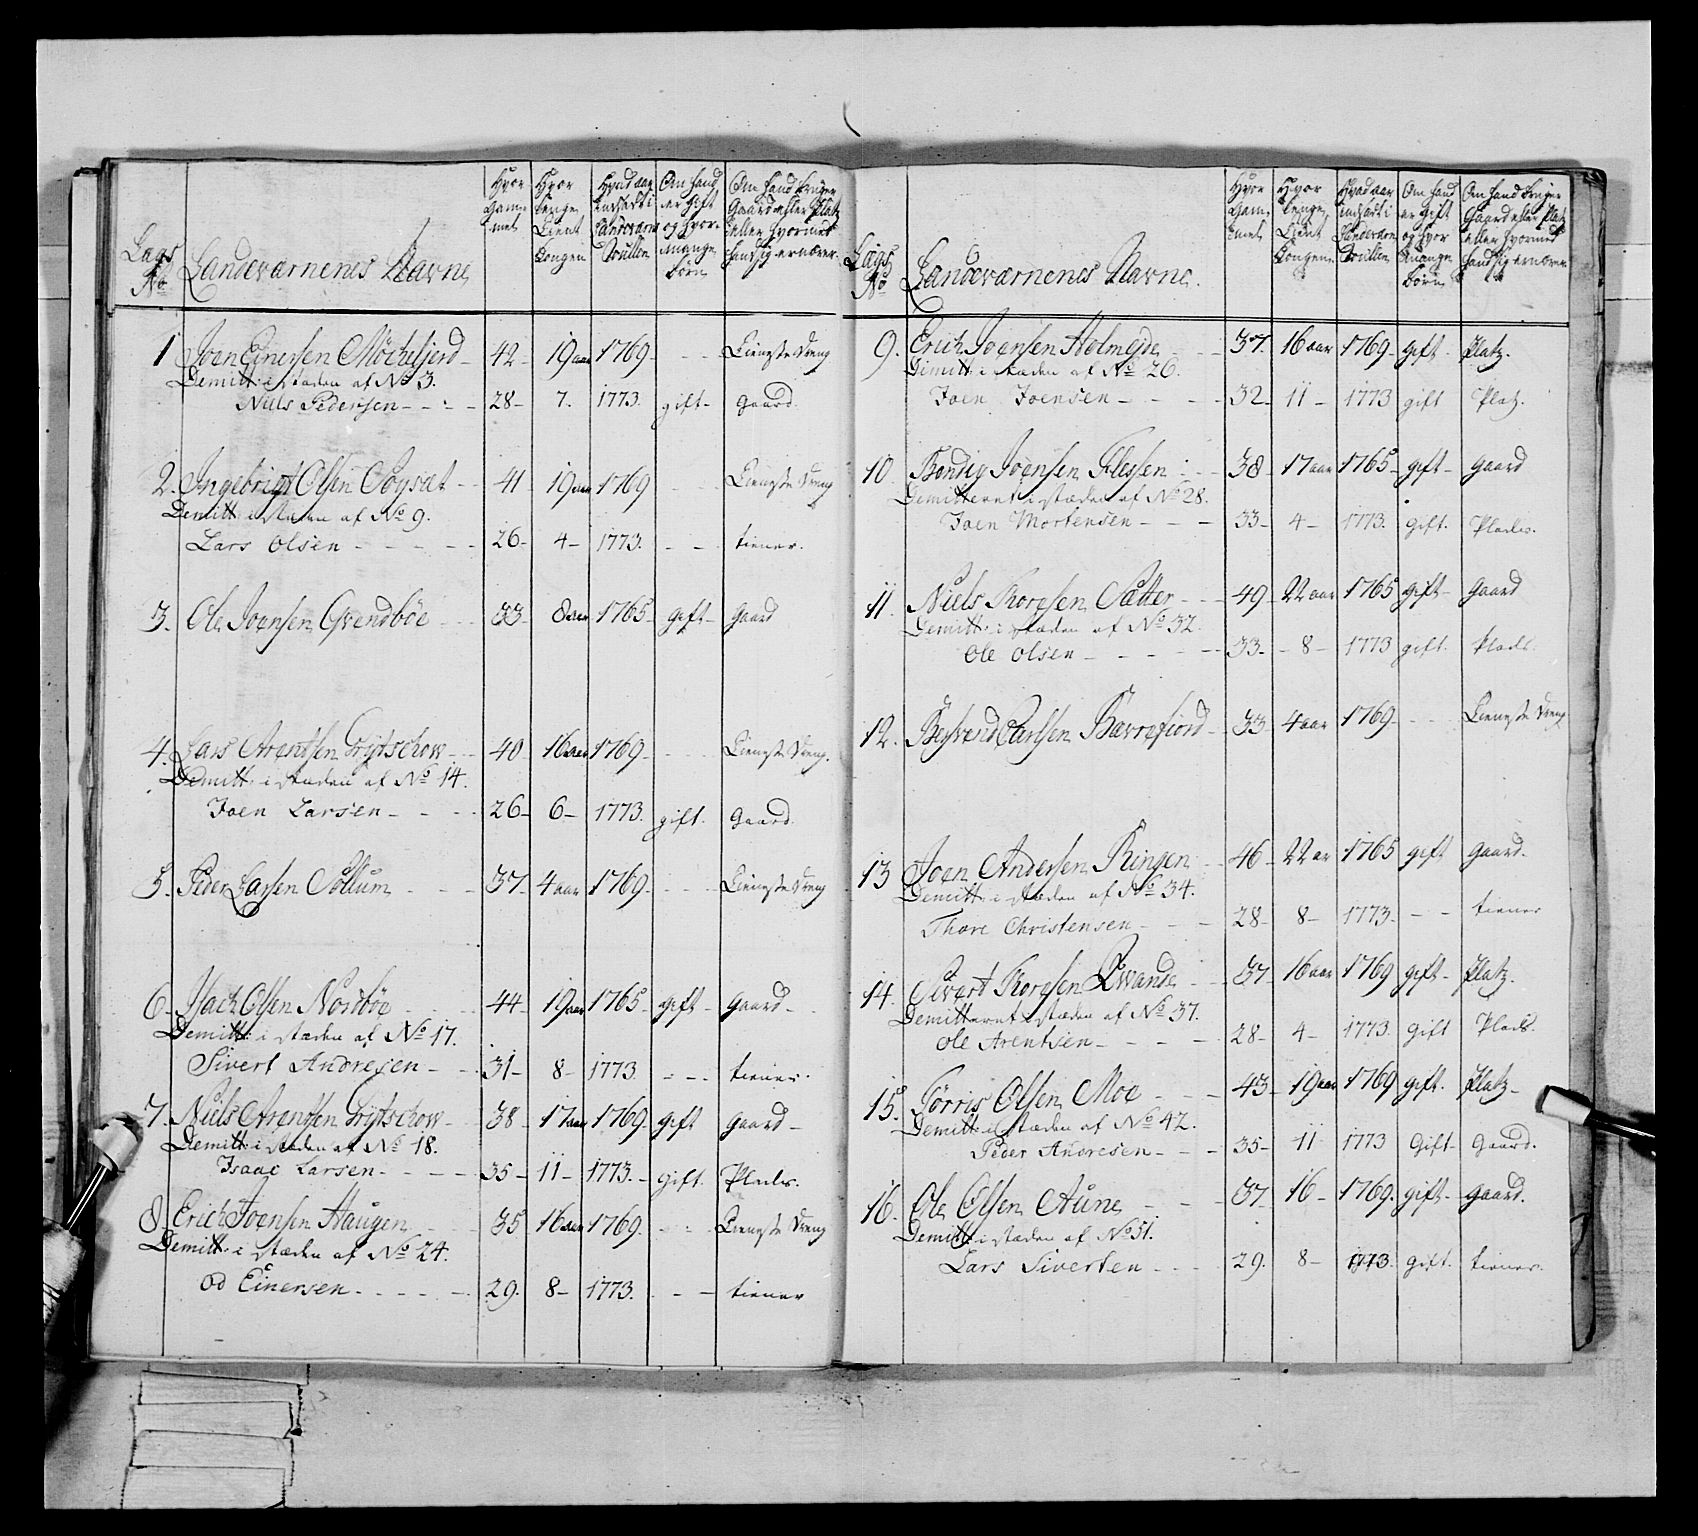 Lægs No
Landeværnenes Navne
Hvor Gam-mel
Hvor lenge Tient Kongen
Hvad aar indsadt i Landeværn Roullen
Om hand er gift og hvor-mange børn
Om hand bruger Gaard eller Platz eller hvormed hand sig ernærer
1 Joen Einersen 42 - 19 aar 1769 - - - Tieneste dreng
Demitt: i stæden af No 3.
Niels Pedersen - - - - 28 - 7. 1773. gift - gaard
2. Ingebrigt Olsen 41 - 19 aar 1769 - - - Tieneste dreng
Demitt: i stæden af No 9.
Lars Olsen - - - - - 26 - 4 - 1773. - - - tiener.
3. Ole Joensen Grendbøe - - - 33 8 aar 1765 - gift - gaard
4. Lars Arentsen 40 16 aar 1769 - - - Tieneste dreng.
Demitt: i stæden af No 14.
Joen Larsen - - - - 26 - 6 - 1773. gift. gaard.
5. Peder Larsen Sollum - - - 37 - 4 aar 1769 - - - Tieneste dreng
6. Isach Olsen Nordbøe - - - 44 - 19 aar 1765 - gift - gaard -
Demitt: i stæden af No 17.
Sivert Andresen - - - 31 - 8 - 1773 - - - tiener.
7. Niels Arentsen 38 - 17 aar 1769. gift gaard -
Demitt: i stæden af No 18.
Isaac Larsen - - - - 35 - 11 - 1773. - gift. Plads.
8. Erich Joensen Haugen - - - 35 16 aar 1769. - - - Tieneste dreng
Demitt: i stæden af No 24.
od Einersen - - - - - 29. 8 - 1773. - - - tiener
Lægs No
Landeværnenes Navne.
Hvor Gam-mel
Hvor lenge Tient Kongen
Hvad aar indsadt i Landeværn Roullen
Om hand er gift og hvor mange børn
Om hand bruger Gaard eller Platz eller hvormed hand sig ernærer
9. Erich Joensen 37. 16 aar 1769 - gift - Platz.
Dimitt: i stæden af No 26.
Joen Joensen - - - - 32 - 11 - 1773 gift Plads.
10 Joensen 38 - 17 aar 1765 - gift - gaard
Demitteret i stæden af No 28.
Joen Mortensen - - - 33 - 4 - 1773. gift. Plads.
11. Niels Thoresen Sætter - - - 49 - 22 aar 1765 gift - gaard
Demitt: i stæden af No 32.
Ole Olsen - - - - - 33 - - 8 - 1773 gift. Plads.
12. Carlsen 33 - 4 aar 1769 - - - Tieneste dreng
13 Joen Andersen Ringen - - 46 - 22 ar 1765 gift gaard.
Demitt: i stæden af No 34.
Thore Christensen - - - 28 - 8 - 1773. - - - tiener
14. Sivert Thoresen 37 - 16 aar 1769 gift - Platz.
Demitteret i stæden af No 37.
Ole Arentsen - - - - 28 - 4 - 1773. gift Plads.
15. Tørris Olsen Moe - - - 43 - 19 aar 1769 gift. Platz -
Demitt: i stæden af No 42.
Peder Andresen - - - 35 - 11 1773 Gift. Gaard.
16. Ole Olsen Aune - - 37 16 - 1769. gift - gaard.
Demitt: i stæden af No 51.
Lars Siversen - - - - 29. 8 - 1773. gift. tiener.